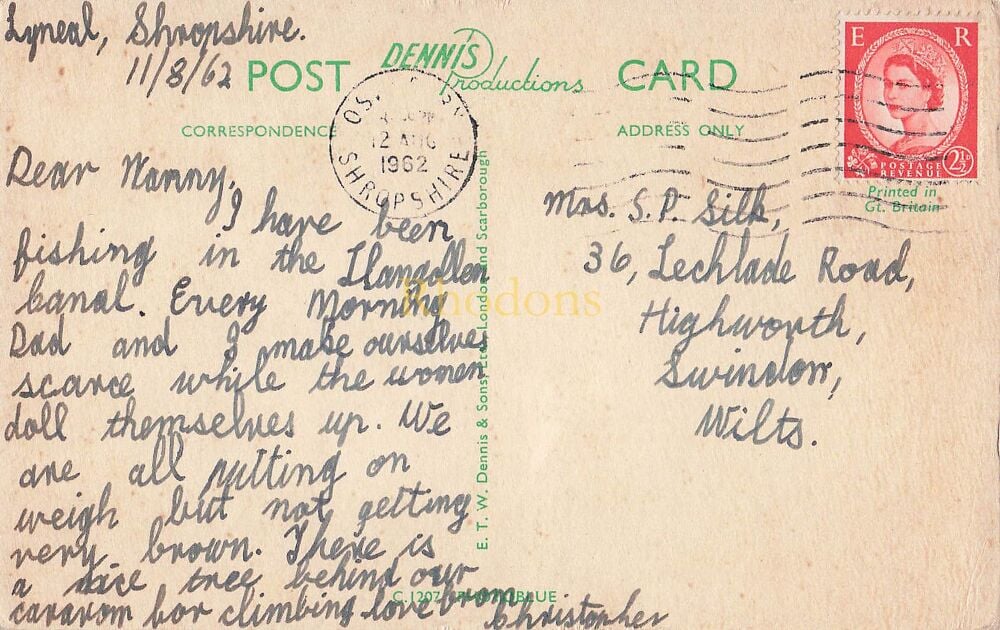 Lyneal, Shropshire.
11/8/62
POST CARD
DENNIS
Productions
CORRESPONDENCE
ADDRESS ONLY
12 AUG
1962
SHROPSHIRE
E R
POSTAGE
REVENUE
2½D
Printed in
Gt. Britain
Dear Nanny,
I have been
fishing in the Llangollen
Canal. Every Morning
Dad and I make ourselves
scarce while the women
doll themselves up. We
are all putting on
weigh but not getting
very brown. There is
a nice tree behind our
caravan for climbing love from
Christopher
E. T. W. Dennis & Sons, Ltd., London and Scarborough
Mrs. S.P. Silk,
36, Lechlade Road,
Highworth,
Swindon,
Wilts.
Rhodons